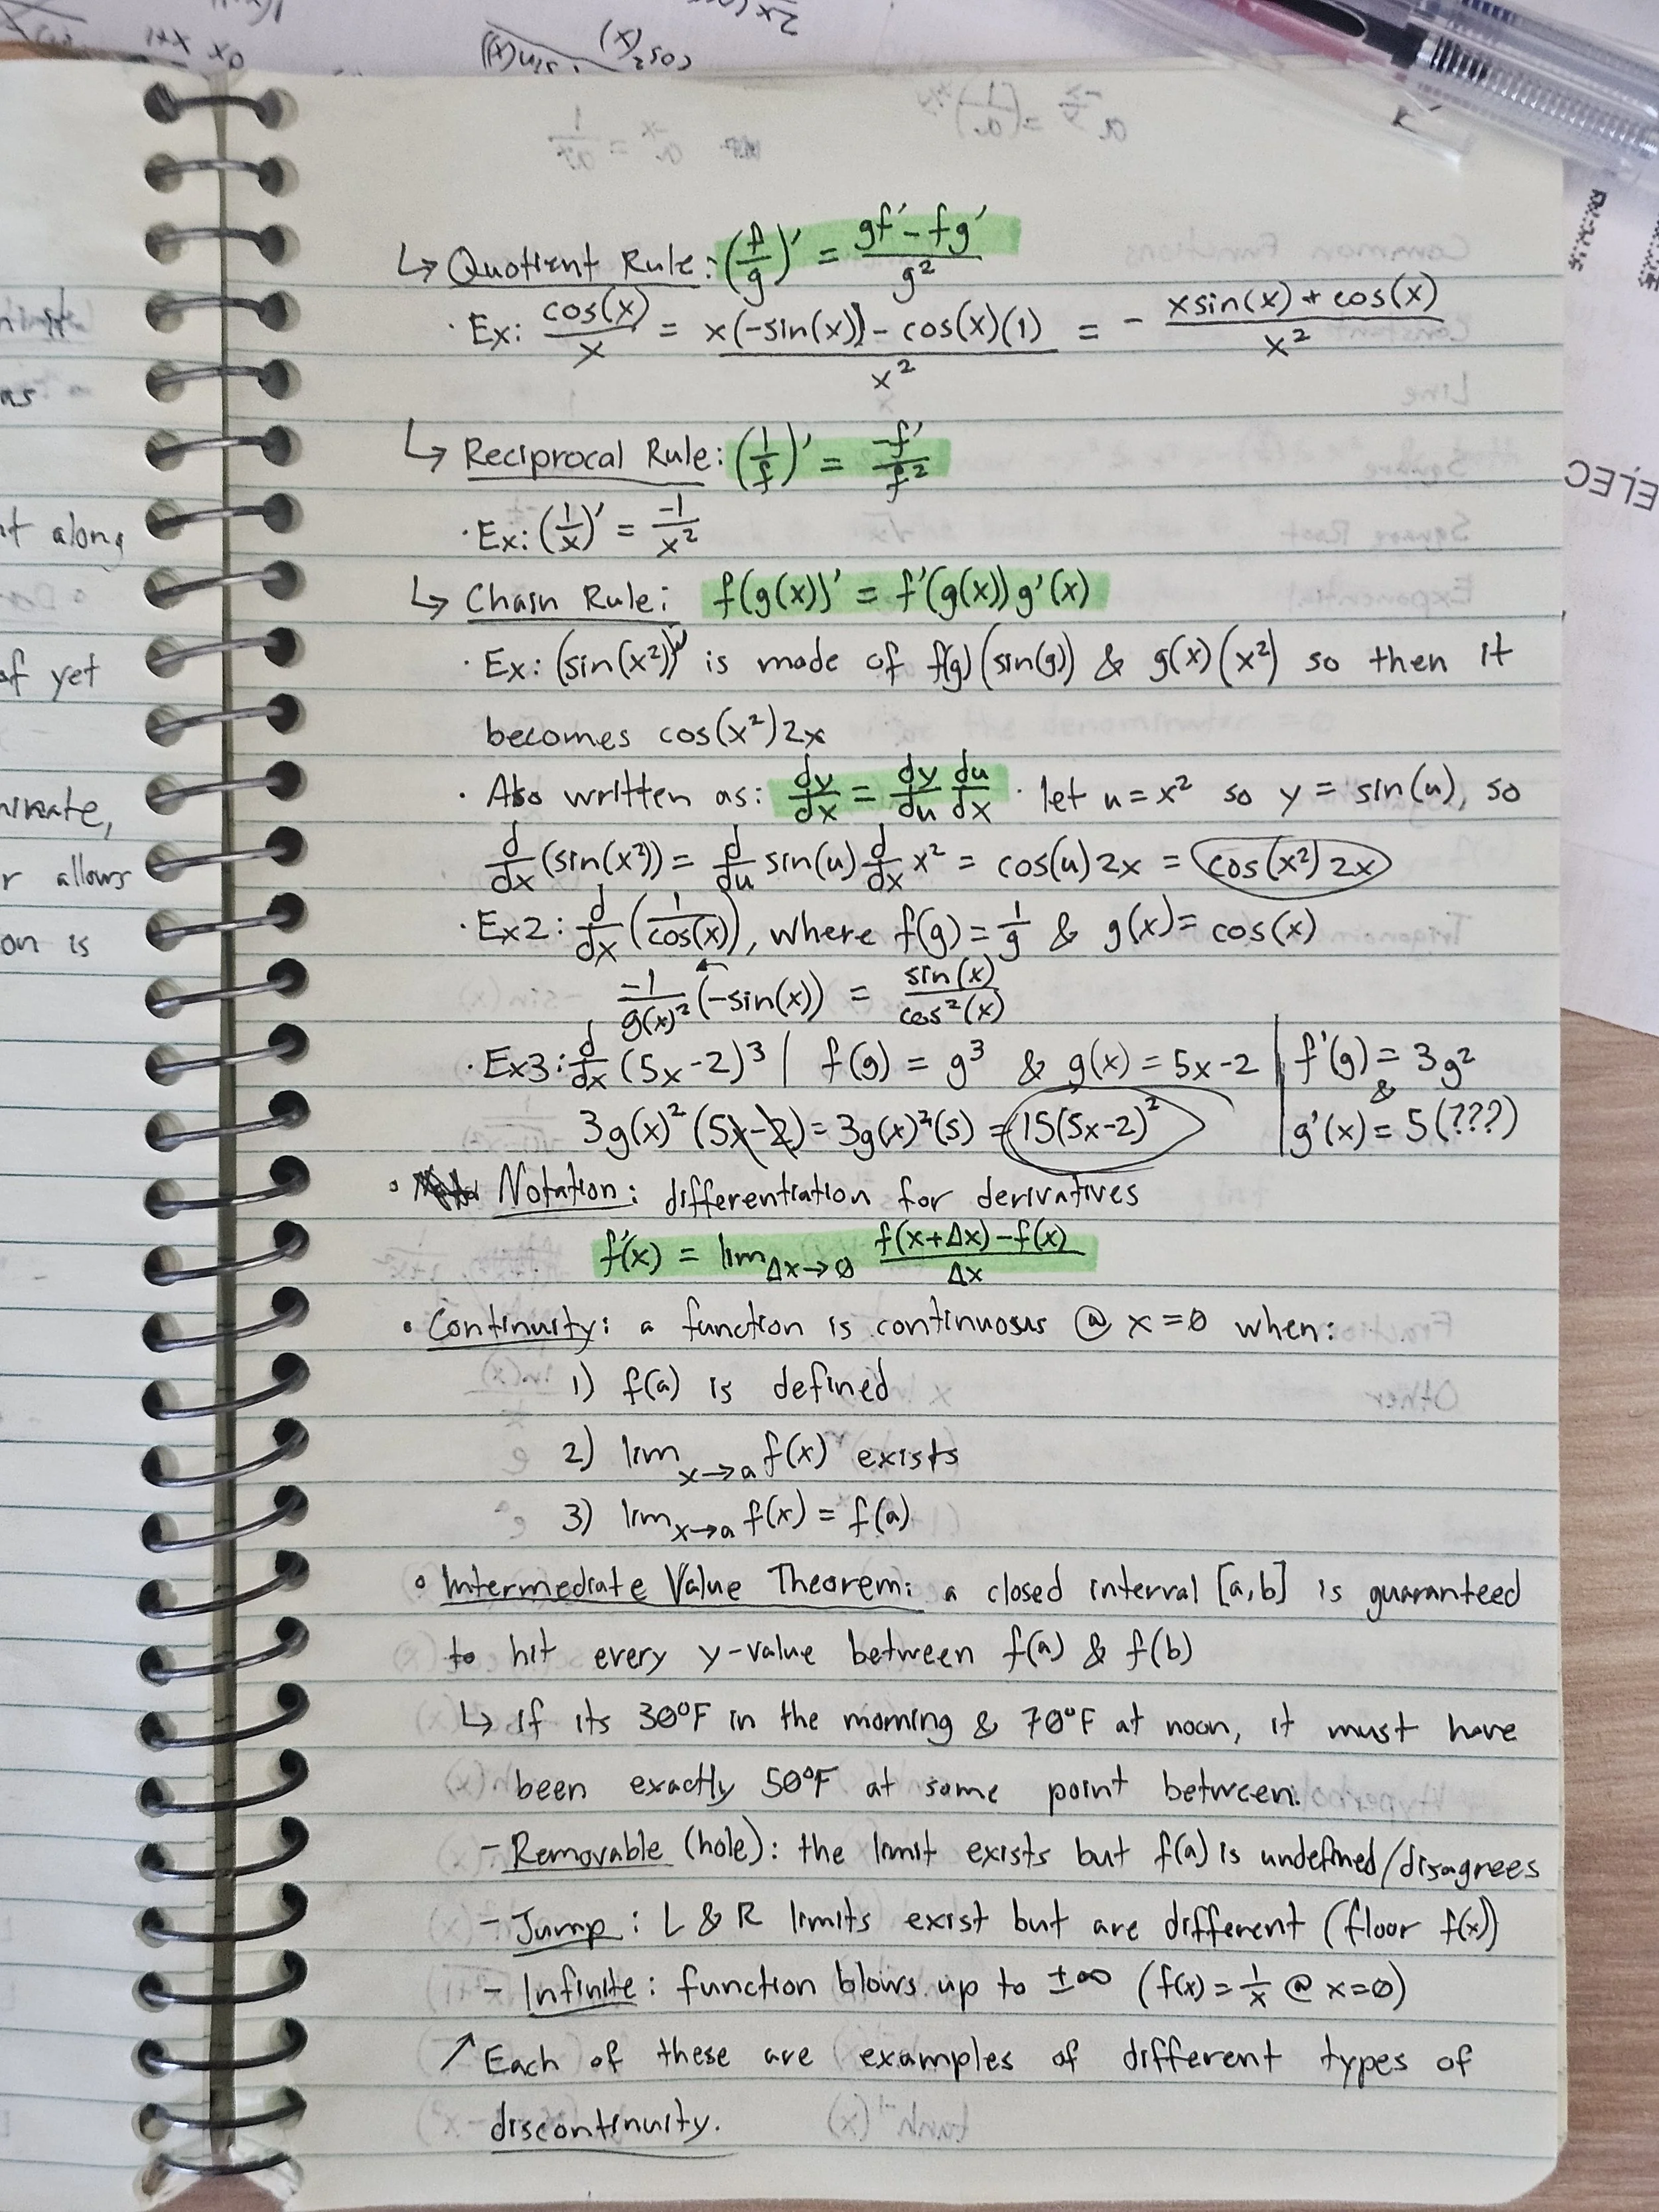 ↳ Quotient Rule: (f/g)′ = (gf′ − fg′)/g²
· Ex: cos(x)/x = (x(−sin(x)) − cos(x)(1))/x² = − (xsin(x) + cos(x))/x²
↳ Reciprocal Rule: (1/f)′ = −f′/f²
· Ex: (1/x)′ = −1/x²
↳ Chain Rule: f(g(x))′ = f′(g(x))g′(x)
· Ex: (sin(x²))′ is made of f(g)(sin(g)) & g(x)(x²) so then it
becomes cos(x²)2x
· Also written as: dy/dx = dy/du du/dx · let u = x² so y = sin(u), so
d/dx (sin(x²)) = d/du sin(u) d/dx x² = cos(u)2x = cos(x²)2x
· Ex2: d/dx (1/cos(x)), where f(g) = 1/g & g(x) = cos(x)
−1/g(x)² (−sin(x)) = sin(x)/cos²(x)
· Ex3: d/dx (5x−2)³ | f(g) = g³ & g(x) = 5x−2 | f′(g) = 3g²
&
3g(x)² (5x−2) = 3g(x)²(5) = 15(5x−2)² | g′(x) = 5(???)
• Notation: differentiation for derivatives
f′(x) = lim Δx→0 (f(x+Δx)−f(x))/Δx
• Continuity: a function is continuous @ x=0 when:
1) f(a) is defined
2) lim x→a f(x) exists
3) lim x→a f(x) = f(a)
• Intermediate Value Theorem: a closed interval [a,b] is guaranteed
to hit every y-value between f(a) & f(b)
↳ If its 30°F in the morning & 70°F at noon, it must have
been exactly 50°F at some point between.
- Removable (hole): the limit exists but f(a) is undefined/disagrees
- Jump: L & R limits exist but are different (floor f(x))
- Infinite: function blows up to ±∞ (f(x) = 1/x @ x=0)
↗ Each of these are examples of different types of
discontinuity.
as
along
of yet
allows
on is
ELEC